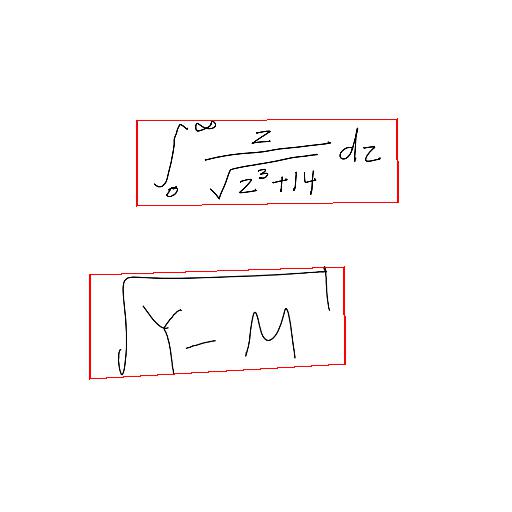 ∫₀^∞ z/√(z³+14) dz
√(Y-M)